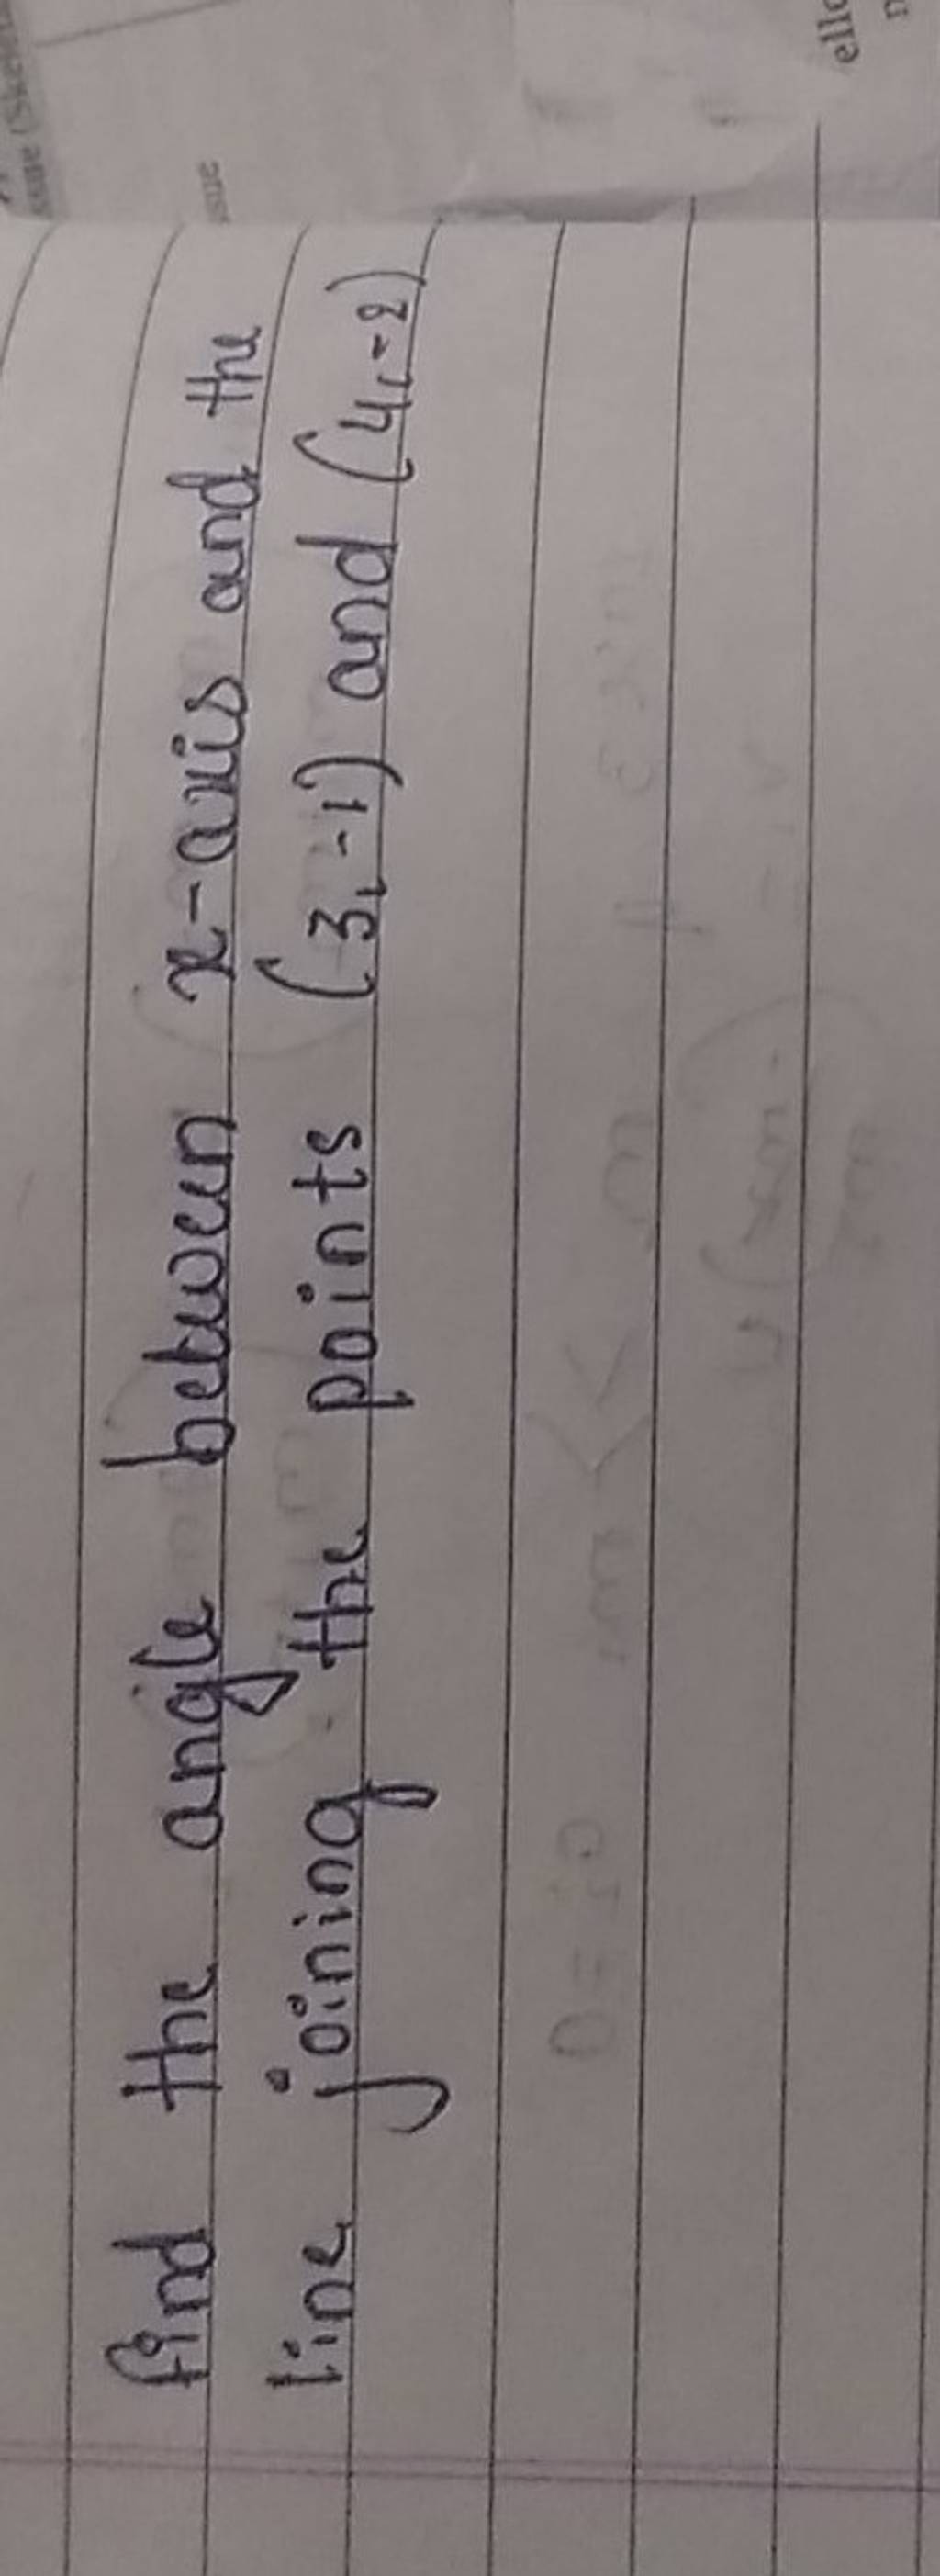 find the angle between x-axis and the
line joining the points (3,-1) and (4,-2)
ello